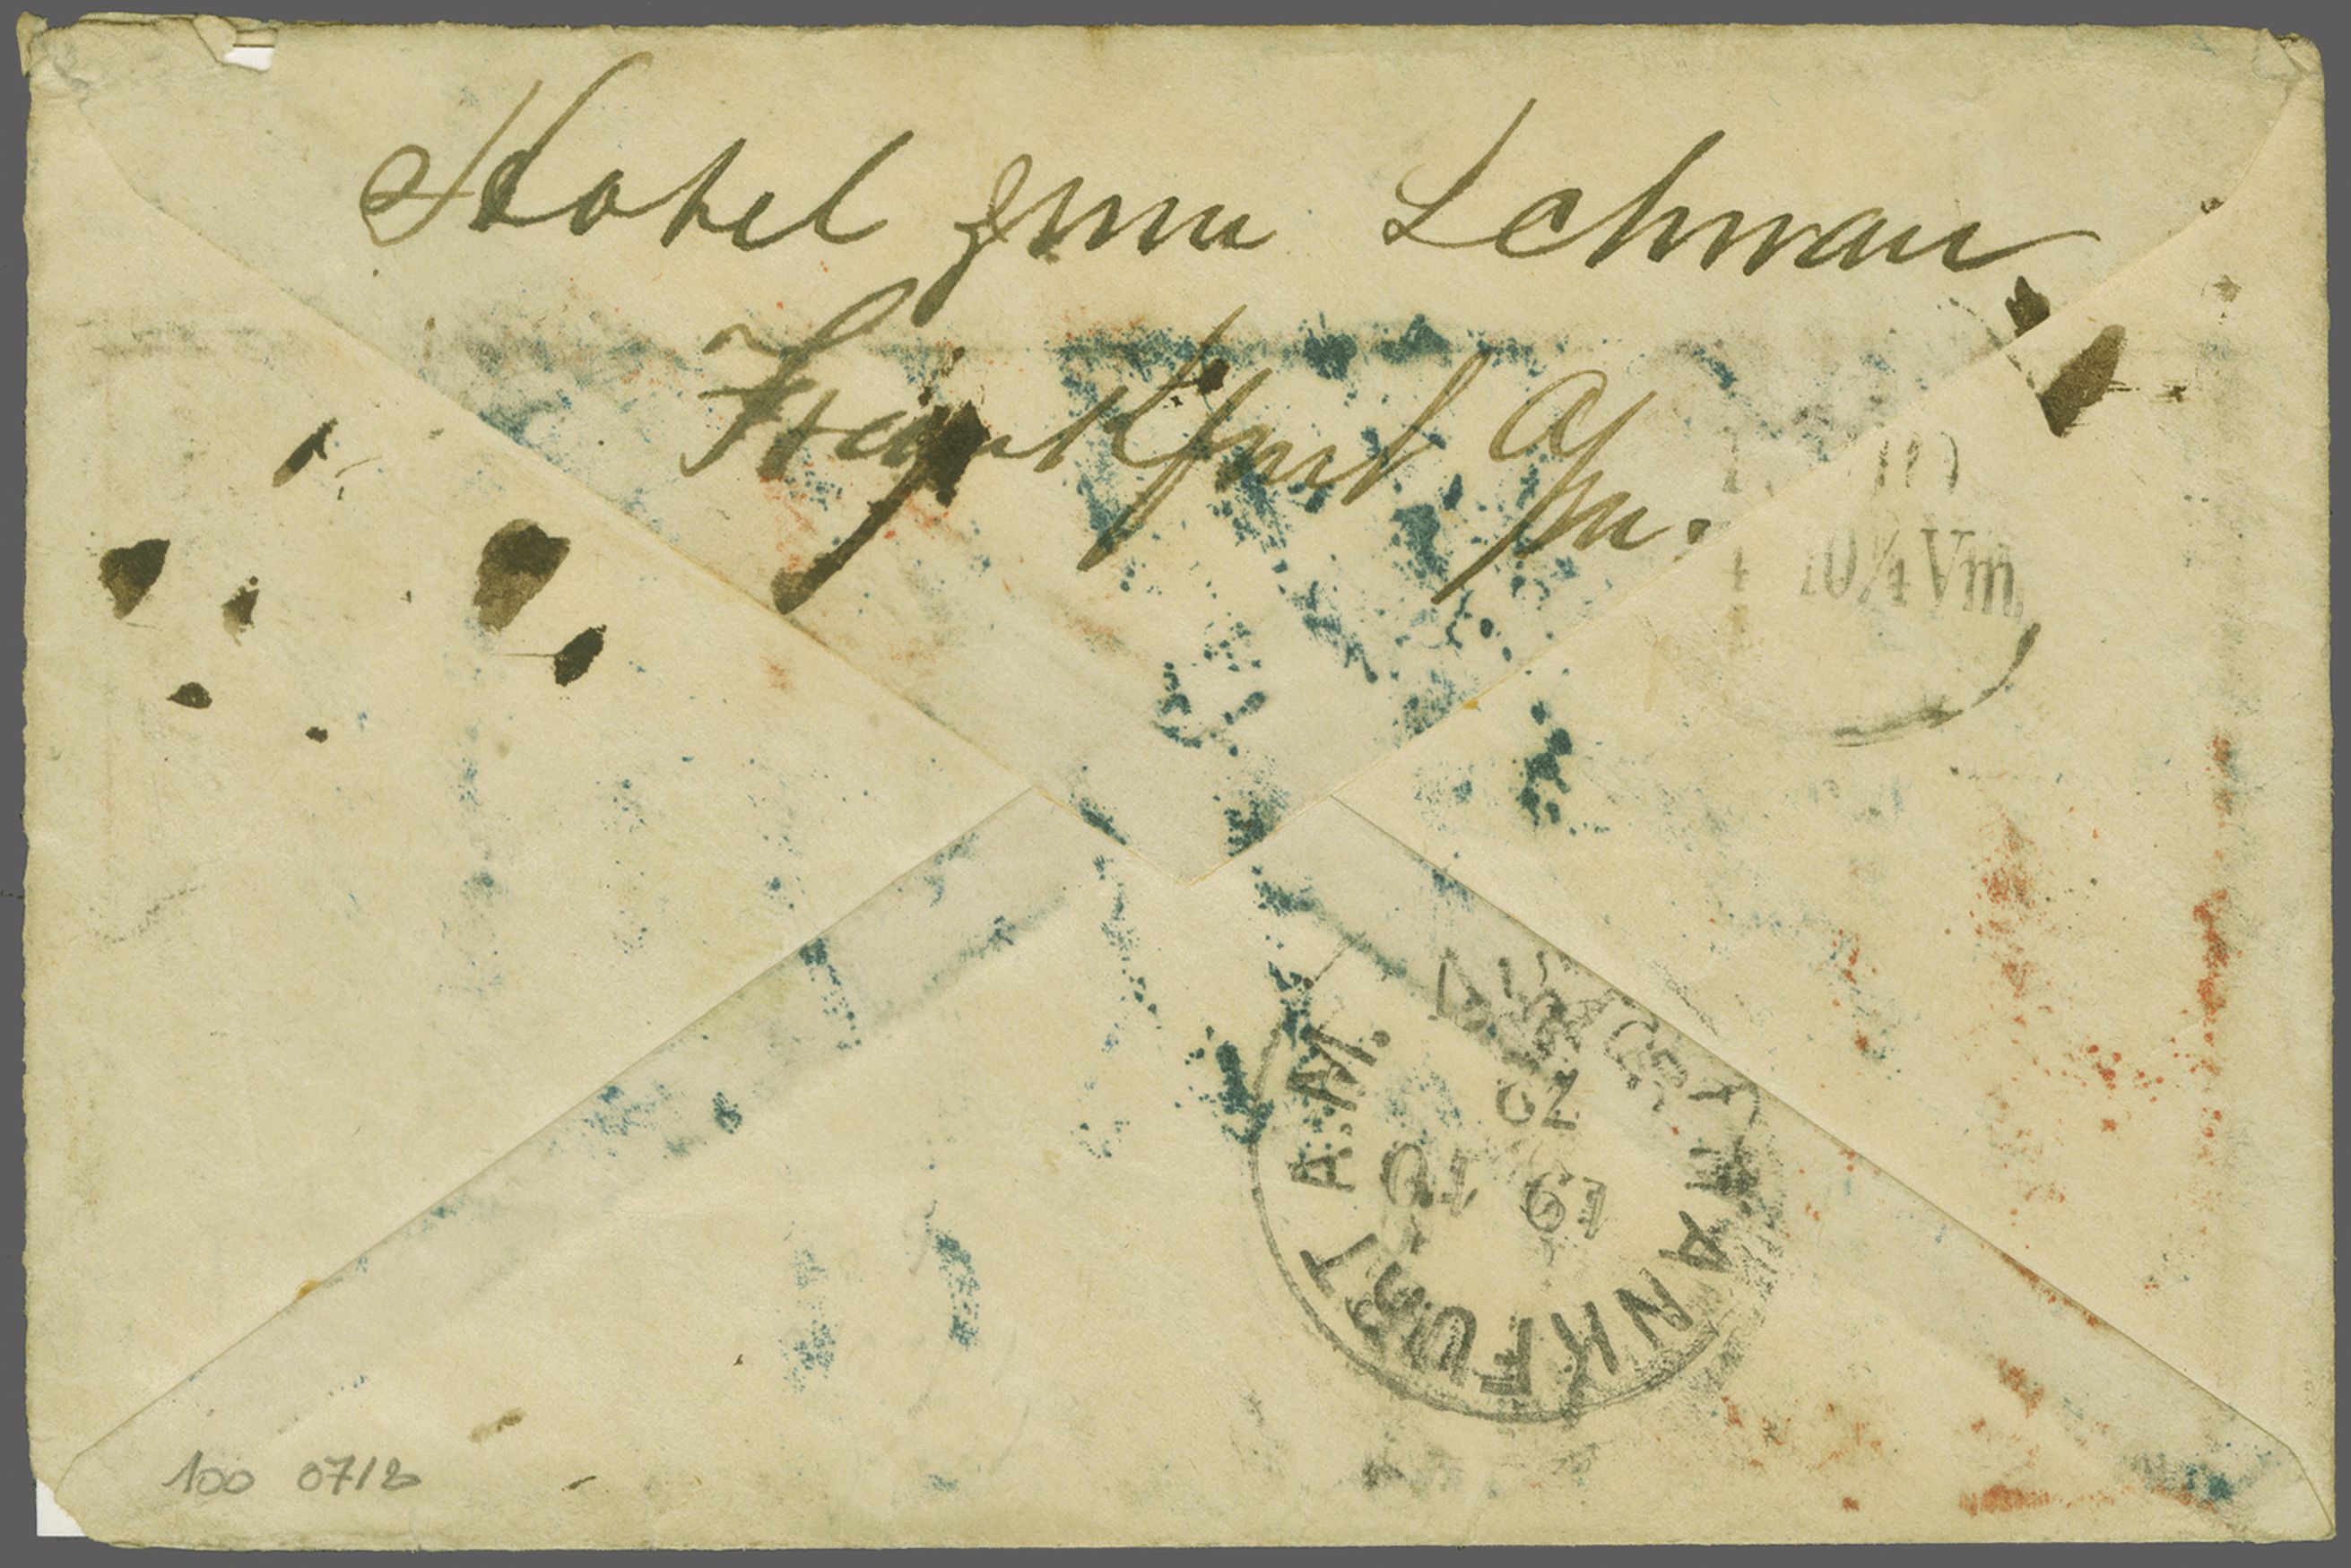 Hotel zum Schwan
Frankfurt a/m.
10¼ Vm
FRANKFURT A.M.
19 10
70
100 0718